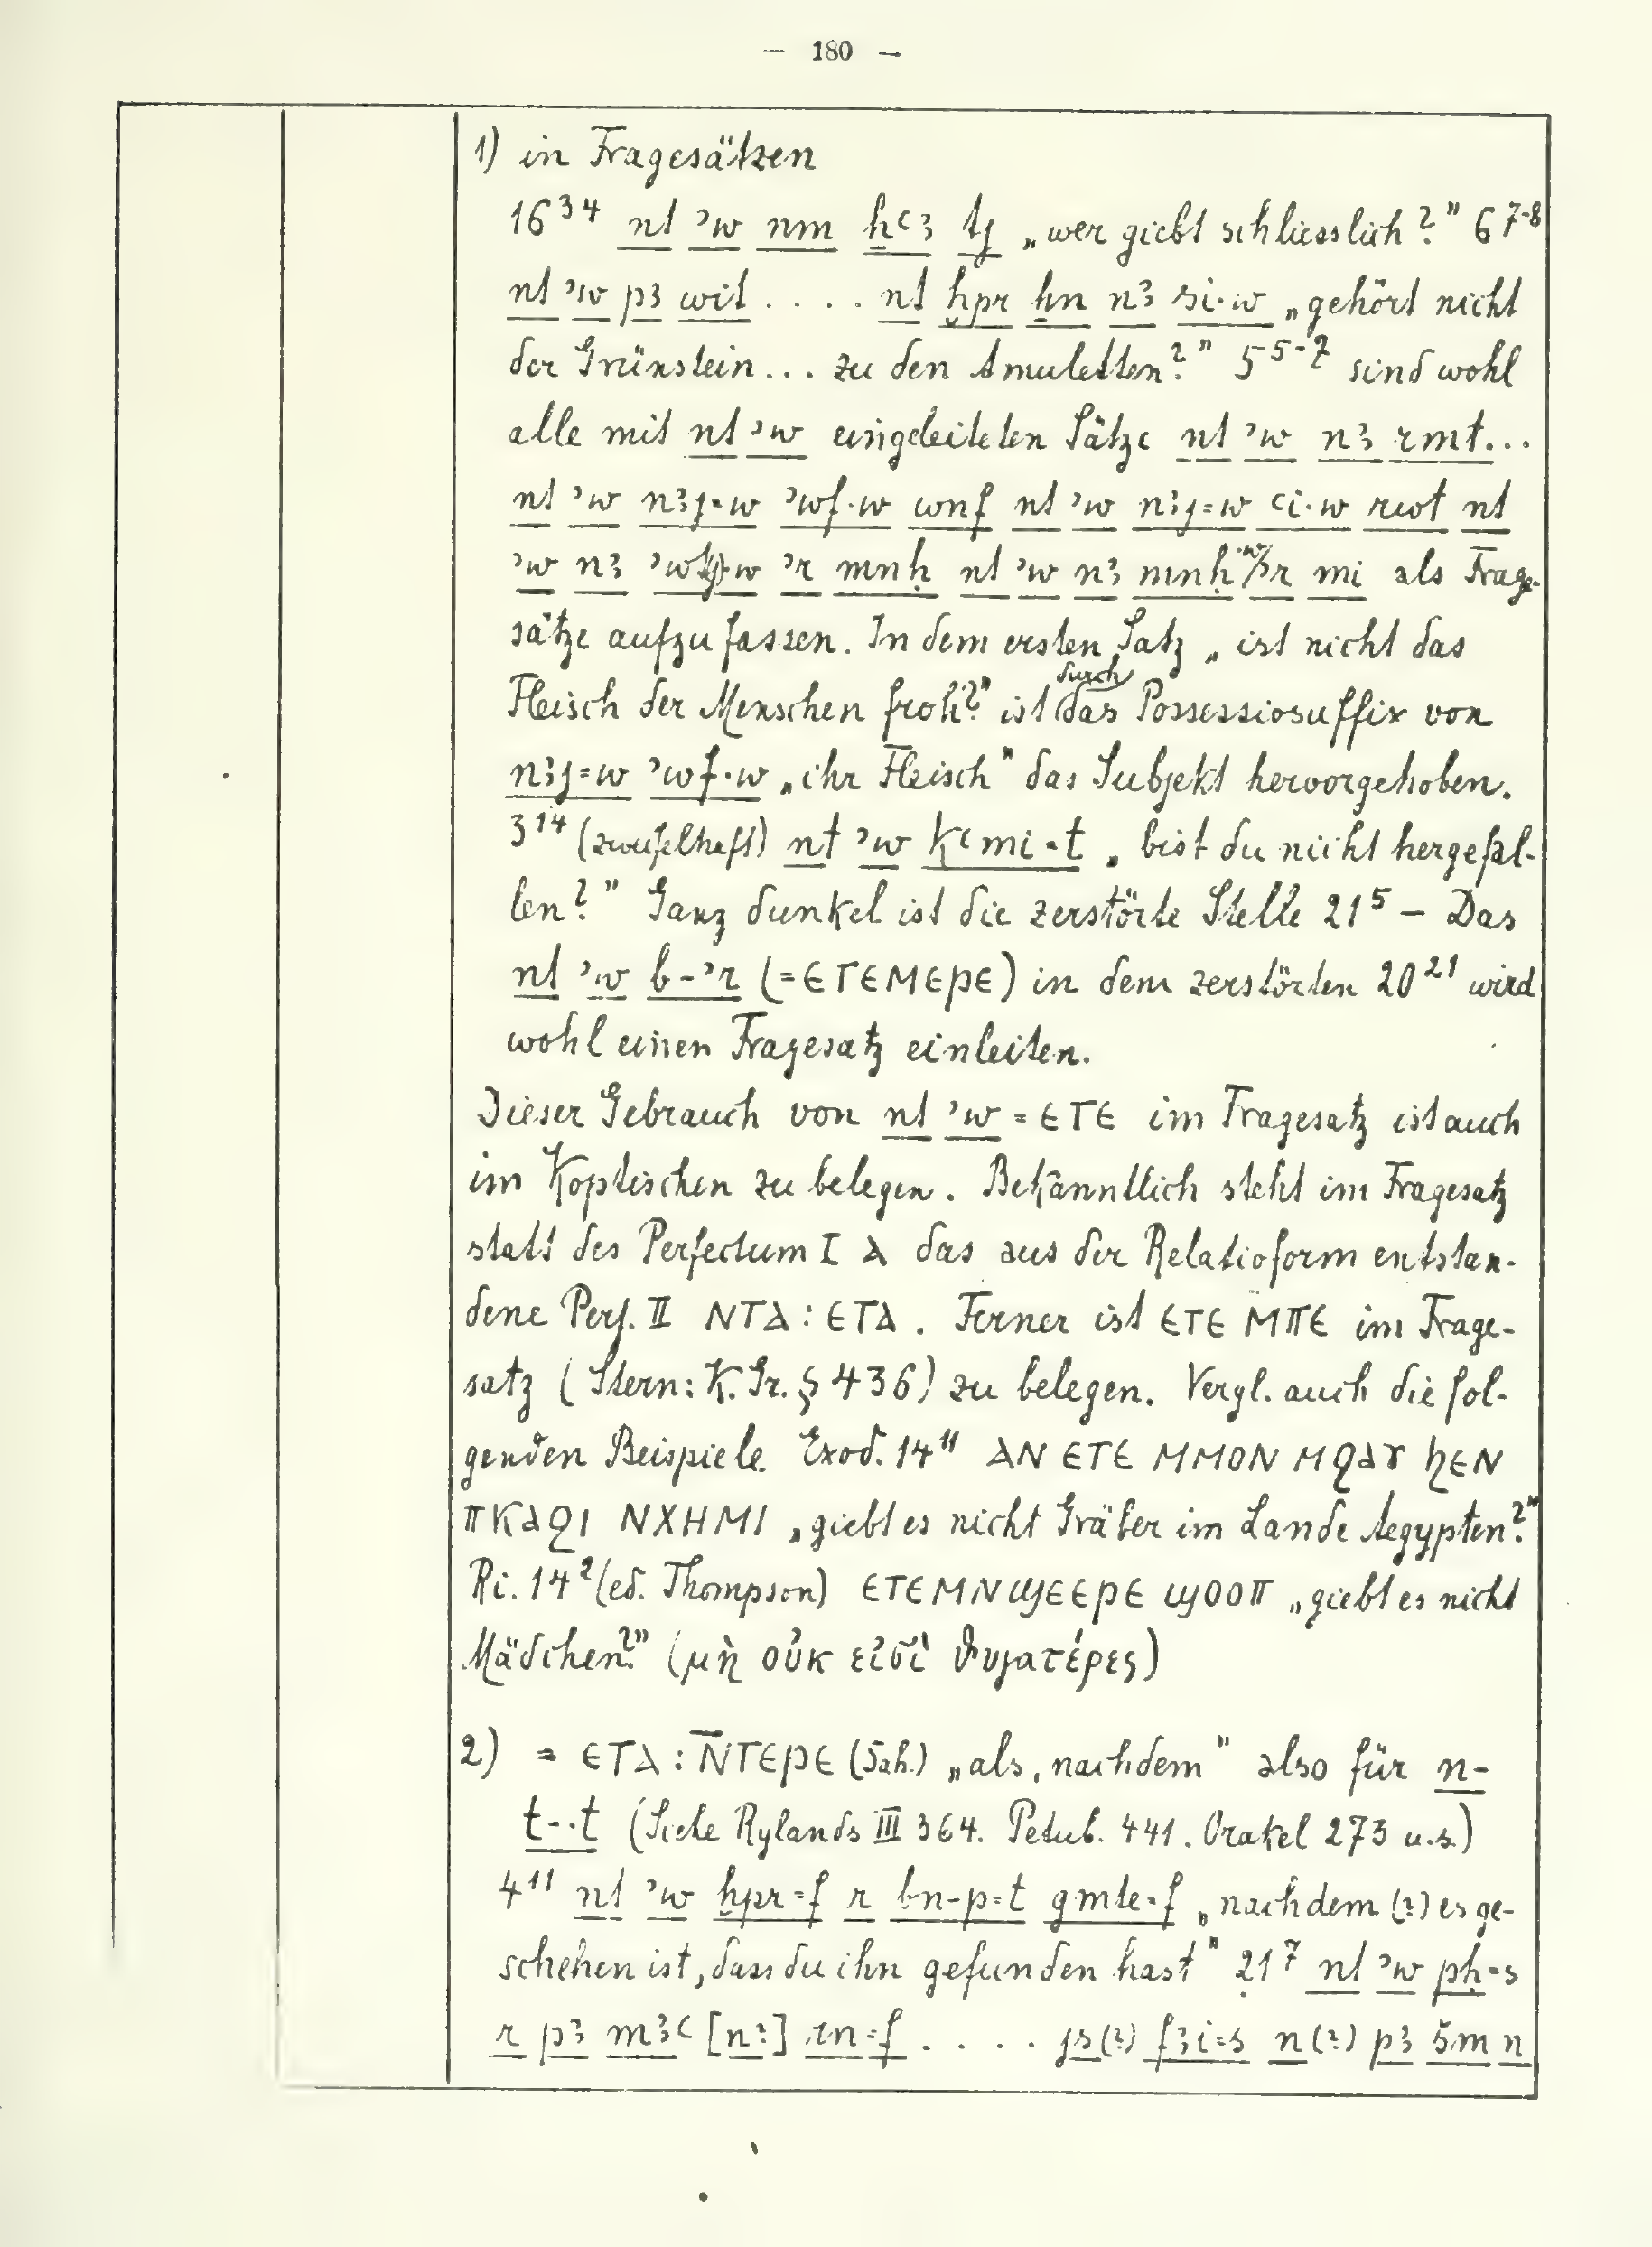 — 180 —
1) in Fragesätzen
16³⁴ nt ʾw nm ḥꜥꜣ tj „wer giebt schliesslich?" 6⁷⁻⁸
nt ʾw pꜣ wit . . . . nt ḫpr ḥn nꜣ si·w „gehört nicht
der Grünstein... zu den Amuletten?" 5⁵⁻⁷ sind wohl
alle mit nt ʾw eingeleiteten Sätze nt ʾw nꜣ rmt...
nt ʾw nꜣj=w ʾwf·w wnf nt ʾw nꜣj=w ꜥi·w rwt nt
ʾw nꜣ ʾr mnḥ nt ʾw nꜣ mnḥ·w ʾr mi als Frage-
sätze aufzufassen. In dem ersten Satz „ist nicht das
Fleisch der Menschen froh?" ist durch das Possessivsuffix von
nꜣj=w ʾwf·w „ihr Fleisch" das Subjekt hervorgehoben.
3¹⁴ (zweifelhaft) nt ʾw kꜥmi·t „bist du nicht hergefal-
len?" Ganz dunkel ist die zerstörte Stelle 21⁵ – Das
nt ʾw b-ʾr (=ⲉⲧⲉⲙⲉⲣⲉ) in dem zerstörten 20²¹ wird
wohl einen Fragesatz einleiten.
Dieser Gebrauch von nt ʾw = ⲉⲧⲉ im Fragesatz ist auch
im Koptischen zu belegen. Bekanntlich steht im Fragesatz
statt des Perfectum I ⲁ das aus der Relativform entstan-
dene Perf. II ⲛⲧⲁ : ⲉⲧⲁ. Ferner ist ⲉⲧⲉ ⲙⲡⲉ im Frage-
satz (Stern: K. Gr. § 436) zu belegen. Vergl. auch die fol-
genden Beispiele. Exod. 14¹¹ ⲁⲛ ⲉⲧⲉ ⲙⲙⲟⲛ ⲙϩⲁⲩ ϧⲉⲛ
ⲡⲕⲁϩⲓ ⲛⲭⲏⲙⲓ „giebt es nicht Gräber im Lande Aegypten?"
Ri. 14² (ed. Thompson) ⲉⲧⲉⲙⲛϣⲉⲉⲣⲉ ϣⲟⲟⲡ „giebt es nicht
Mädchen?" (μὴ οὐκ εἰσὶ θυγατέρες)
2) = ⲉⲧⲁ : ⲛ̄ⲧⲉⲣⲉ (Sah.) „als, nachdem" also für n-
t-·t (Siehe Rylands III 364. Petub. 441. Orakel 273 u.s.)
4¹¹ nt ʾw ḫpr=f r bn-p=t gmte=f „nachdem (?) es ge-
schehen ist, dass du ihn gefunden hast" 21⁷ nt ʾw pḥ=s
r pꜣ mꜣꜥ [n?] rn=f . . . . js(?) fꜣi=s n(?) pꜣ šm n